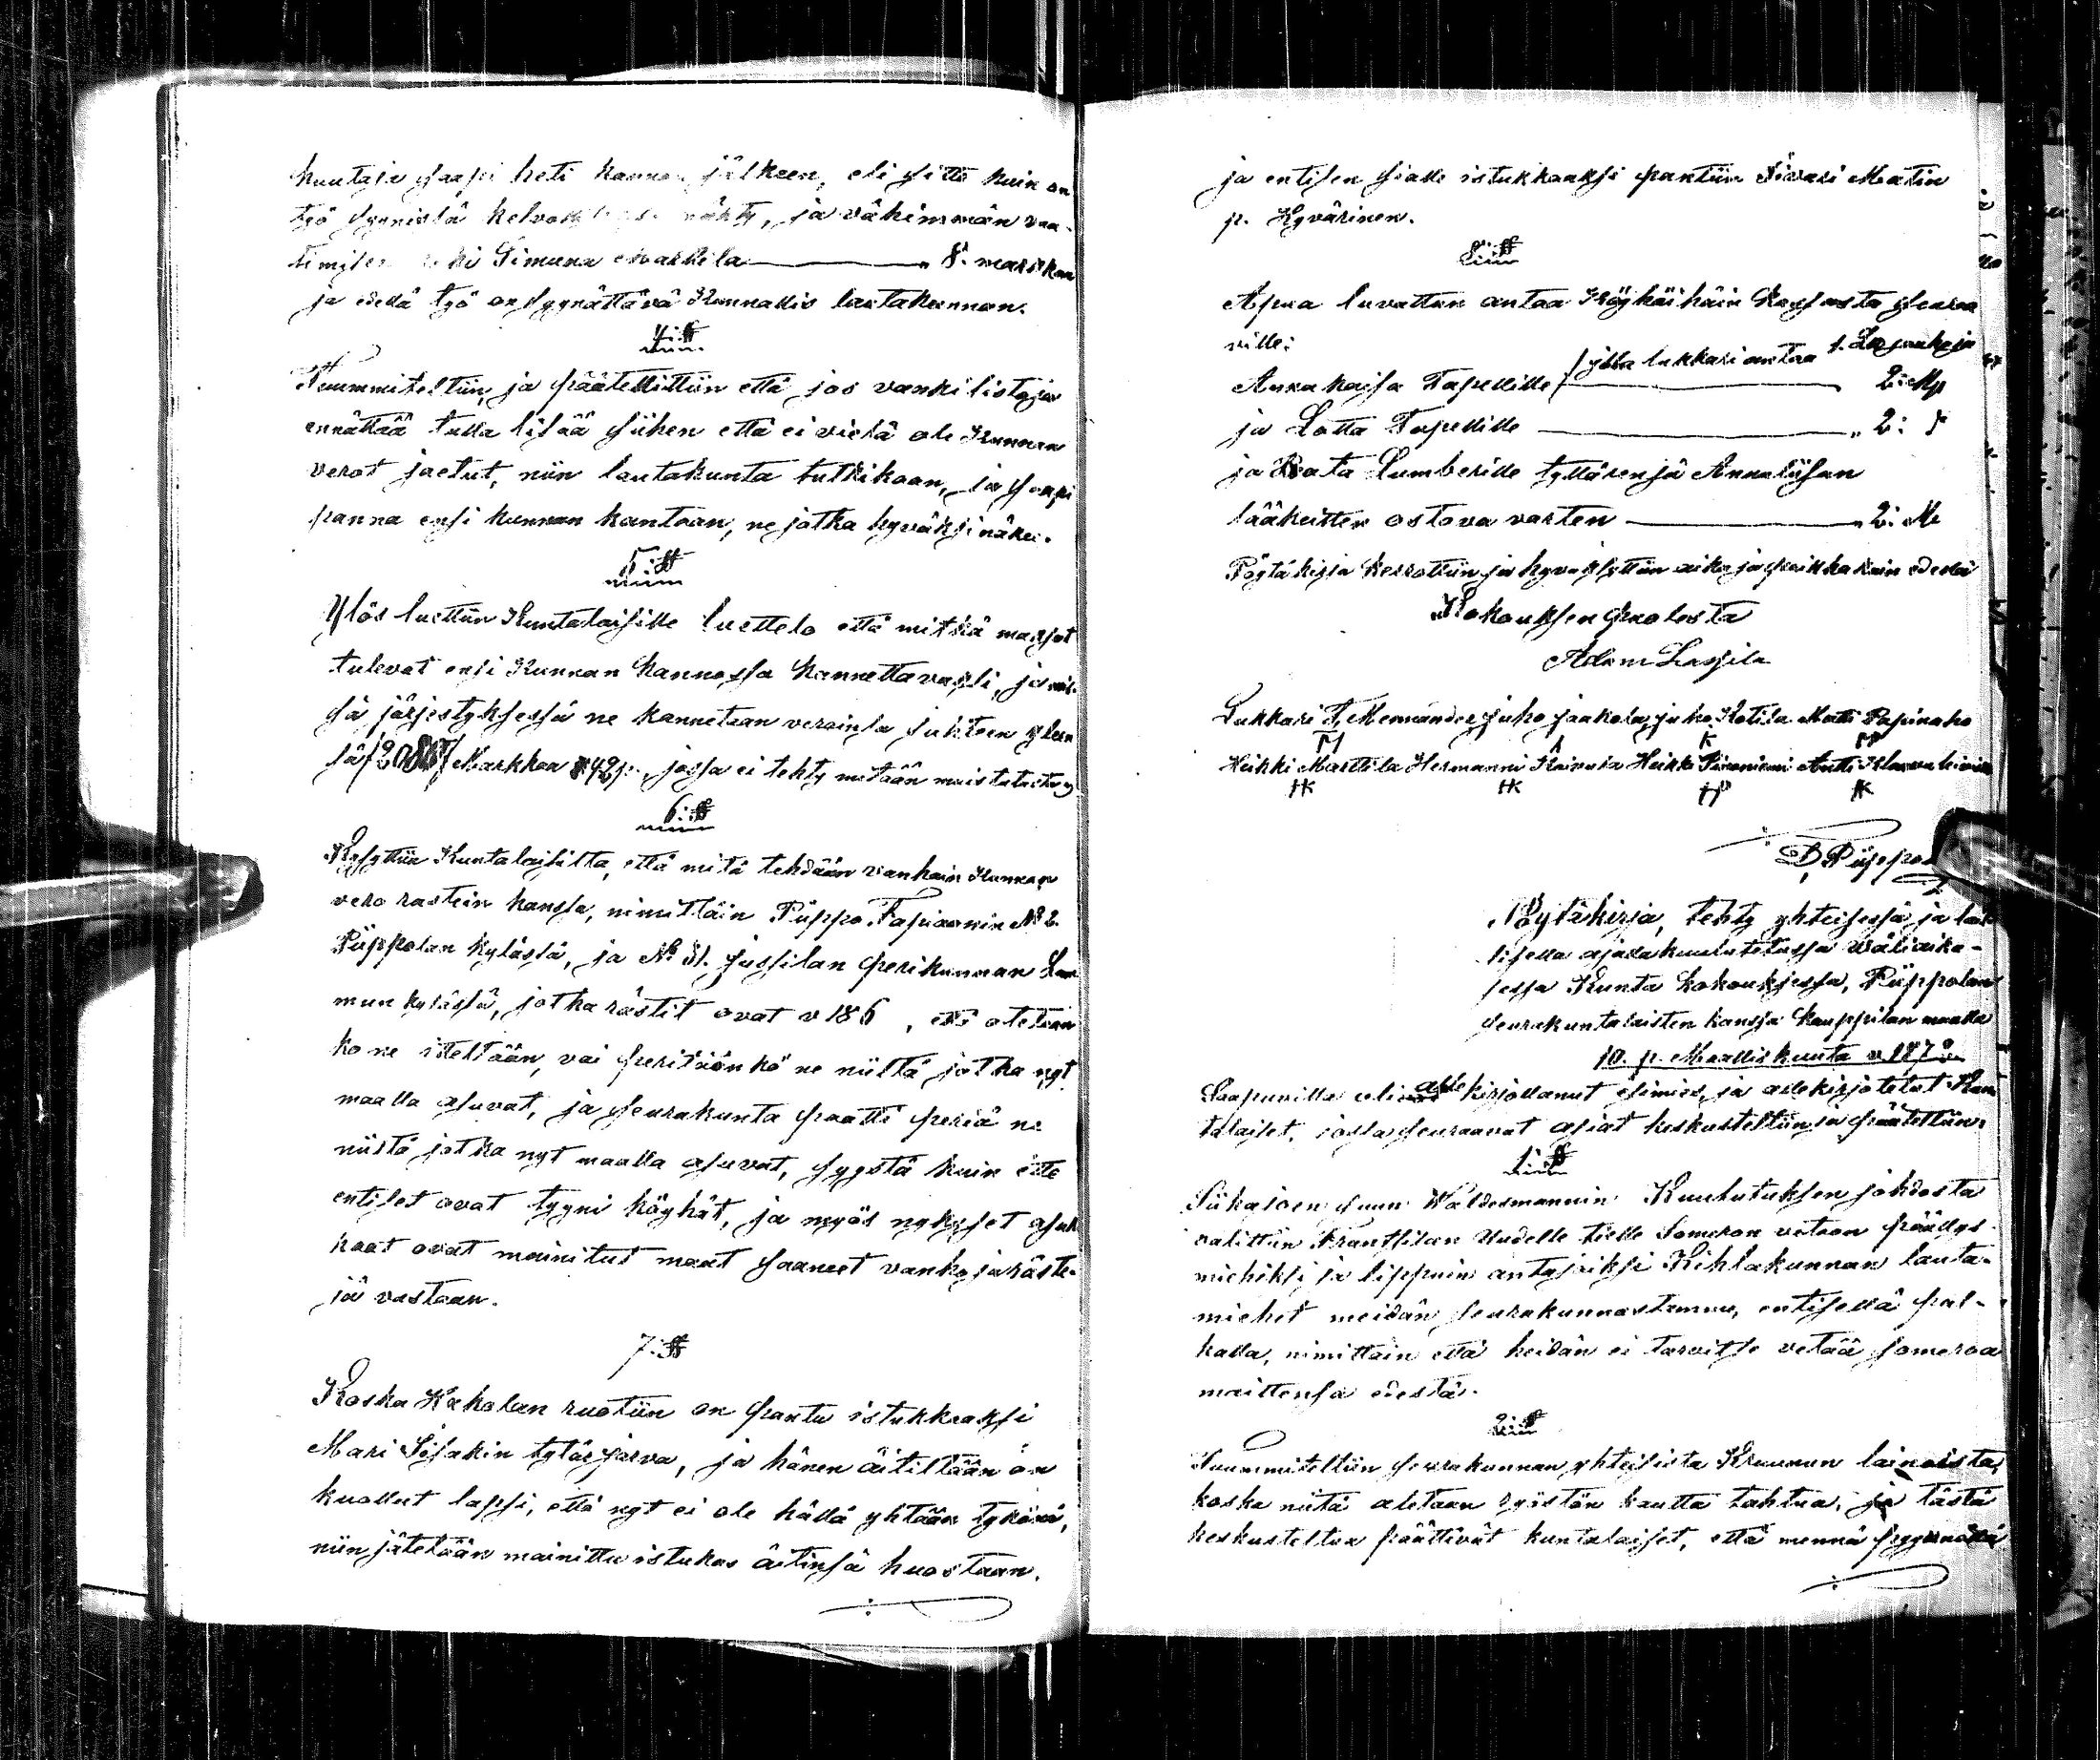 kuutaja saapi heti kannon jälkeen, eli sitte kuin on
työ syynissä nähty, ja vähimmän vaa-
Simuna Markkila — 8: markkaa
ja edellä työ on syynättävä Kunnallis lautakunnan.
4:§
Tuummiteltiin, ja päätellittiin että jos vankilistoja
ennättää tulla lisää siihen että ei vielä ole Kunnan
verot jaetut, niin lautakunta tutkikaan, ja saapi
panna ensi kunnan kantoon, ne jotka hyväksi näkee.
5:§
Ylös luettiin Kuntalaisille luettelo että mitkä maxsot
tulevat ensi Kunnan kannossa kannettavaksi, ja mis-
sä järjestyksessä ne kannetaan veroinla suhteen yleen
sä Markkaa 42 p. jossa ei tehty mitään muistutusta
6:§
Kysyttiin Kuntalaisilta, että mitä tehdään vanhain Kunnan
vero rästein kanssa, nimittäin Piippo Tapioonin No 2.
Piippolan kylässä, ja No 31. Jussilan perikunnan Lam
mun kylässä, jotka rästit ovat v 186 , että otetaan
ko ne isteltään, vai peritäänkö ne niiltä jotka nyt
maalla asuvat, ja seurakunta päätti periä ne
niiltä jotka nyt maalla asuvat, syystä kuin ette
entiset ovat tyyni köyhät, ja myös nykyset asuk
kaat ovat mainitut maat saaneet vanhoja räste-
jä vastaan.
7:§
Koska Kakolan ruotiin on pantu istukkaaksi
Mari Iisakin tytär Jarva, ja hänen äitiltään on
kuollut lapsi, että nyt ei ole hällä yhtään tykönä,
niin jätetään mainittu istukas äitinsä huostaan.
ja entisen sialle istukkaaksi pantiin Iivari Matin
p. Hyvärinen.
8:§
Apua luvattiin antaa Köyhäihäin kassasta seuraa
ville:
Anna kaisa Tapellille / jolla lukkari antaa 1. — 2: Mk
ja Lotta Tapellille — „ 2: „
ja Lumberille tyttärensä Annaliisan
lääkeitten ostova varten — „ 2: M
Pöytäkirja kerrottiin ja hyväksyttiin aika ja paikka kuin edellä
Kokouksen puolesta
Adam Lassila
Lukkari F, Mennander Juho Jaakola, Juho Kotila Matti Papinaho
Heikki Marttila Hermanni Heikki Piiraniemi Antti
HK HK HP AK
D, Piippo
Pöytäkirja, tehty yhteisessä ja lail
lisella ajalla kuulutetussa väliaika-
sessa Kunta kokouksessa, Piippolan
seurakuntalaisten kanssa Kauppilan maalla
10. p. Maaliskuuta v. 187
Saapuvilla oli allekirjoittanut esimies, ja allekirjotetut Kun
talaiset, jossa seuraavat asiat keskusteltiin ja päätettiin.
1:§
Siikajoen suun Waldesmannin Kuulutuksen johdosta
valittiin Frantsilan Uudelle tielle Someron vetoon päällys-
miehiksi ja lippuin antajaiksi Kihlakunnan lauta-
miehet meidän seurakunnastamme, entisellä pal-
kalla, nimittäin että heidän ei tarvitse vetää someroa
maittensa edestä.
2:§
Tuummiteltiin seurakunnan yhteisistä Kruunun lainoista,
koska niitä aletaan ryöstön kautta tahtua, ja tästä
keskusteltua päättivät kuntalaiset, että mennä syynnällä